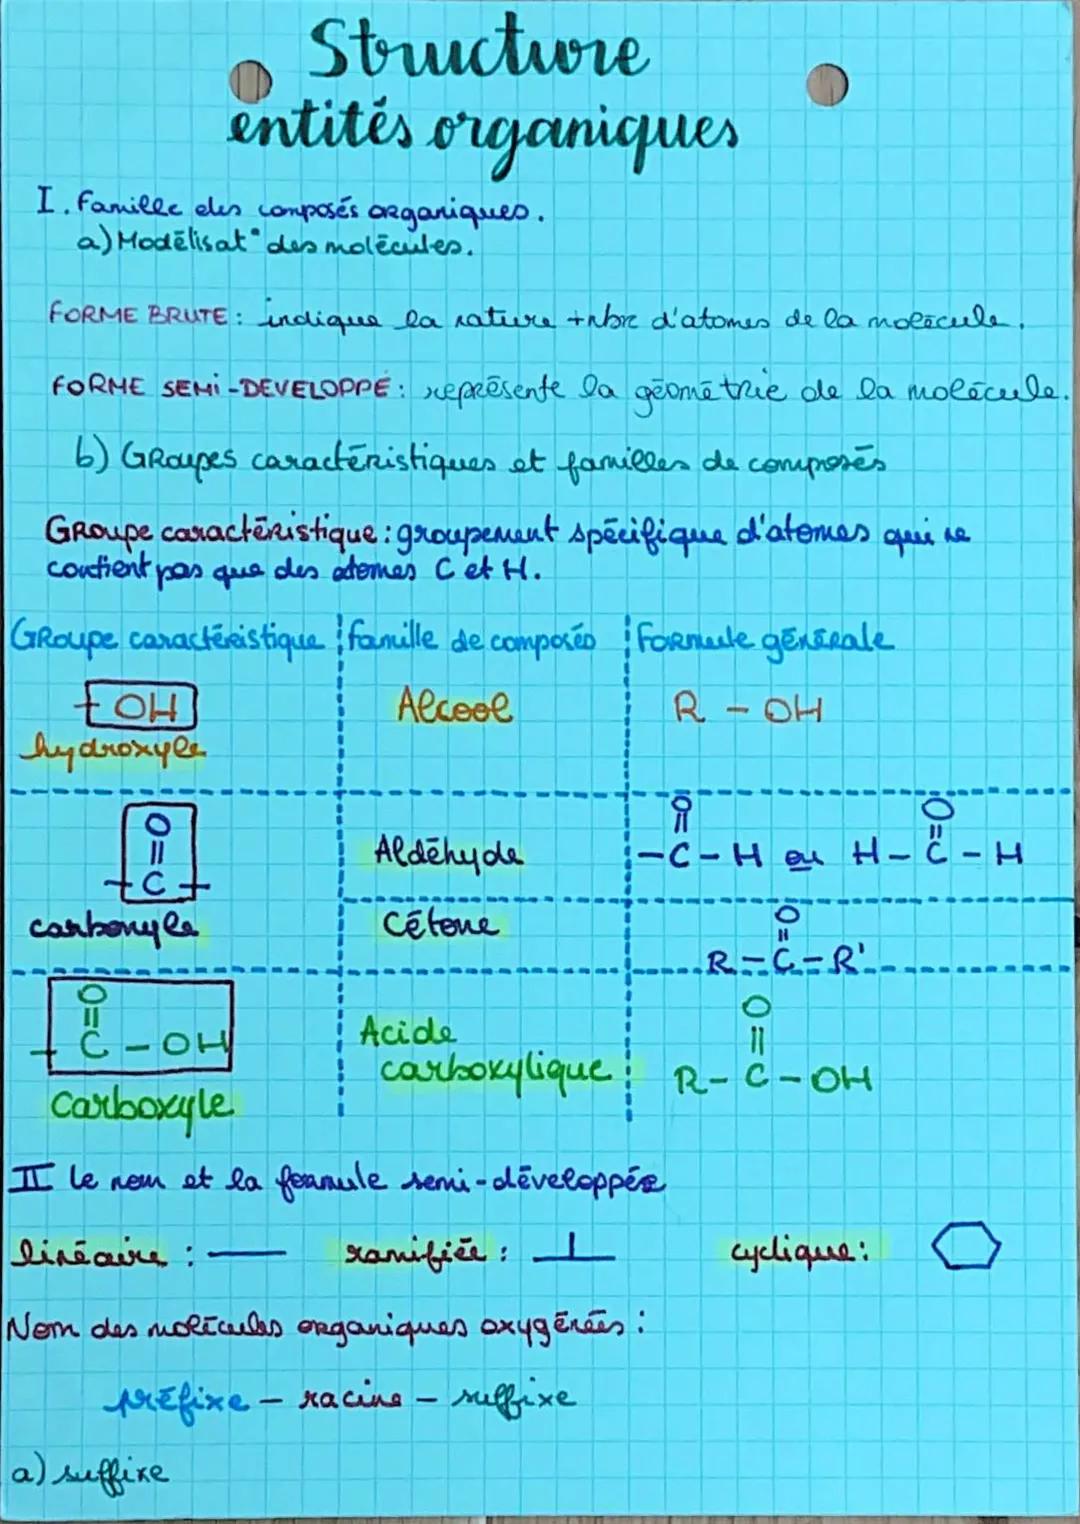 Structure
entités organiques
I. Famille des composés organiques.
a) Modélisat° des molécules.
FORME BRUTE : indique la nature + nbre d'atomes de la molécule.
FORME SEMI-DEVELOPPÉ : représente la géométrie de la molécule.
b) Groupes caractéristiques et familles de composés
Groupe caractéristique : groupement spécifique d'atomes qui ne
contient pas que des atomes C et H.
Groupe caractéristique famille de composés Formule générale
- OH Alcool R - OH
hydroxyle
O
||
- C -
carbonyle
Aldéhyde
O
||
- C - H ou H - C - H
O
||
Cétone
O
||
R - C - R'
O
||
- C - OH
Carboxyle
Acide
carboxylique
O
||
R - C - OH
II le nom et la formule semi-développée
linéaire : ramifiée : cyclique :
Nom des molécules organiques oxygénées :
préfixe - racine - suffixe
a) suffixe